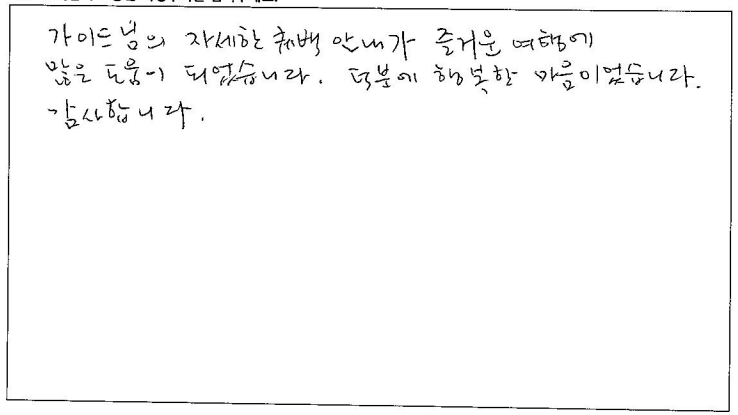 가이드님의 자세한 퀘벡 안내가 즐거운 여행에
많은 도움이 되었습니다. 덕분에 행복한 마음이었습니다.
감사합니다.